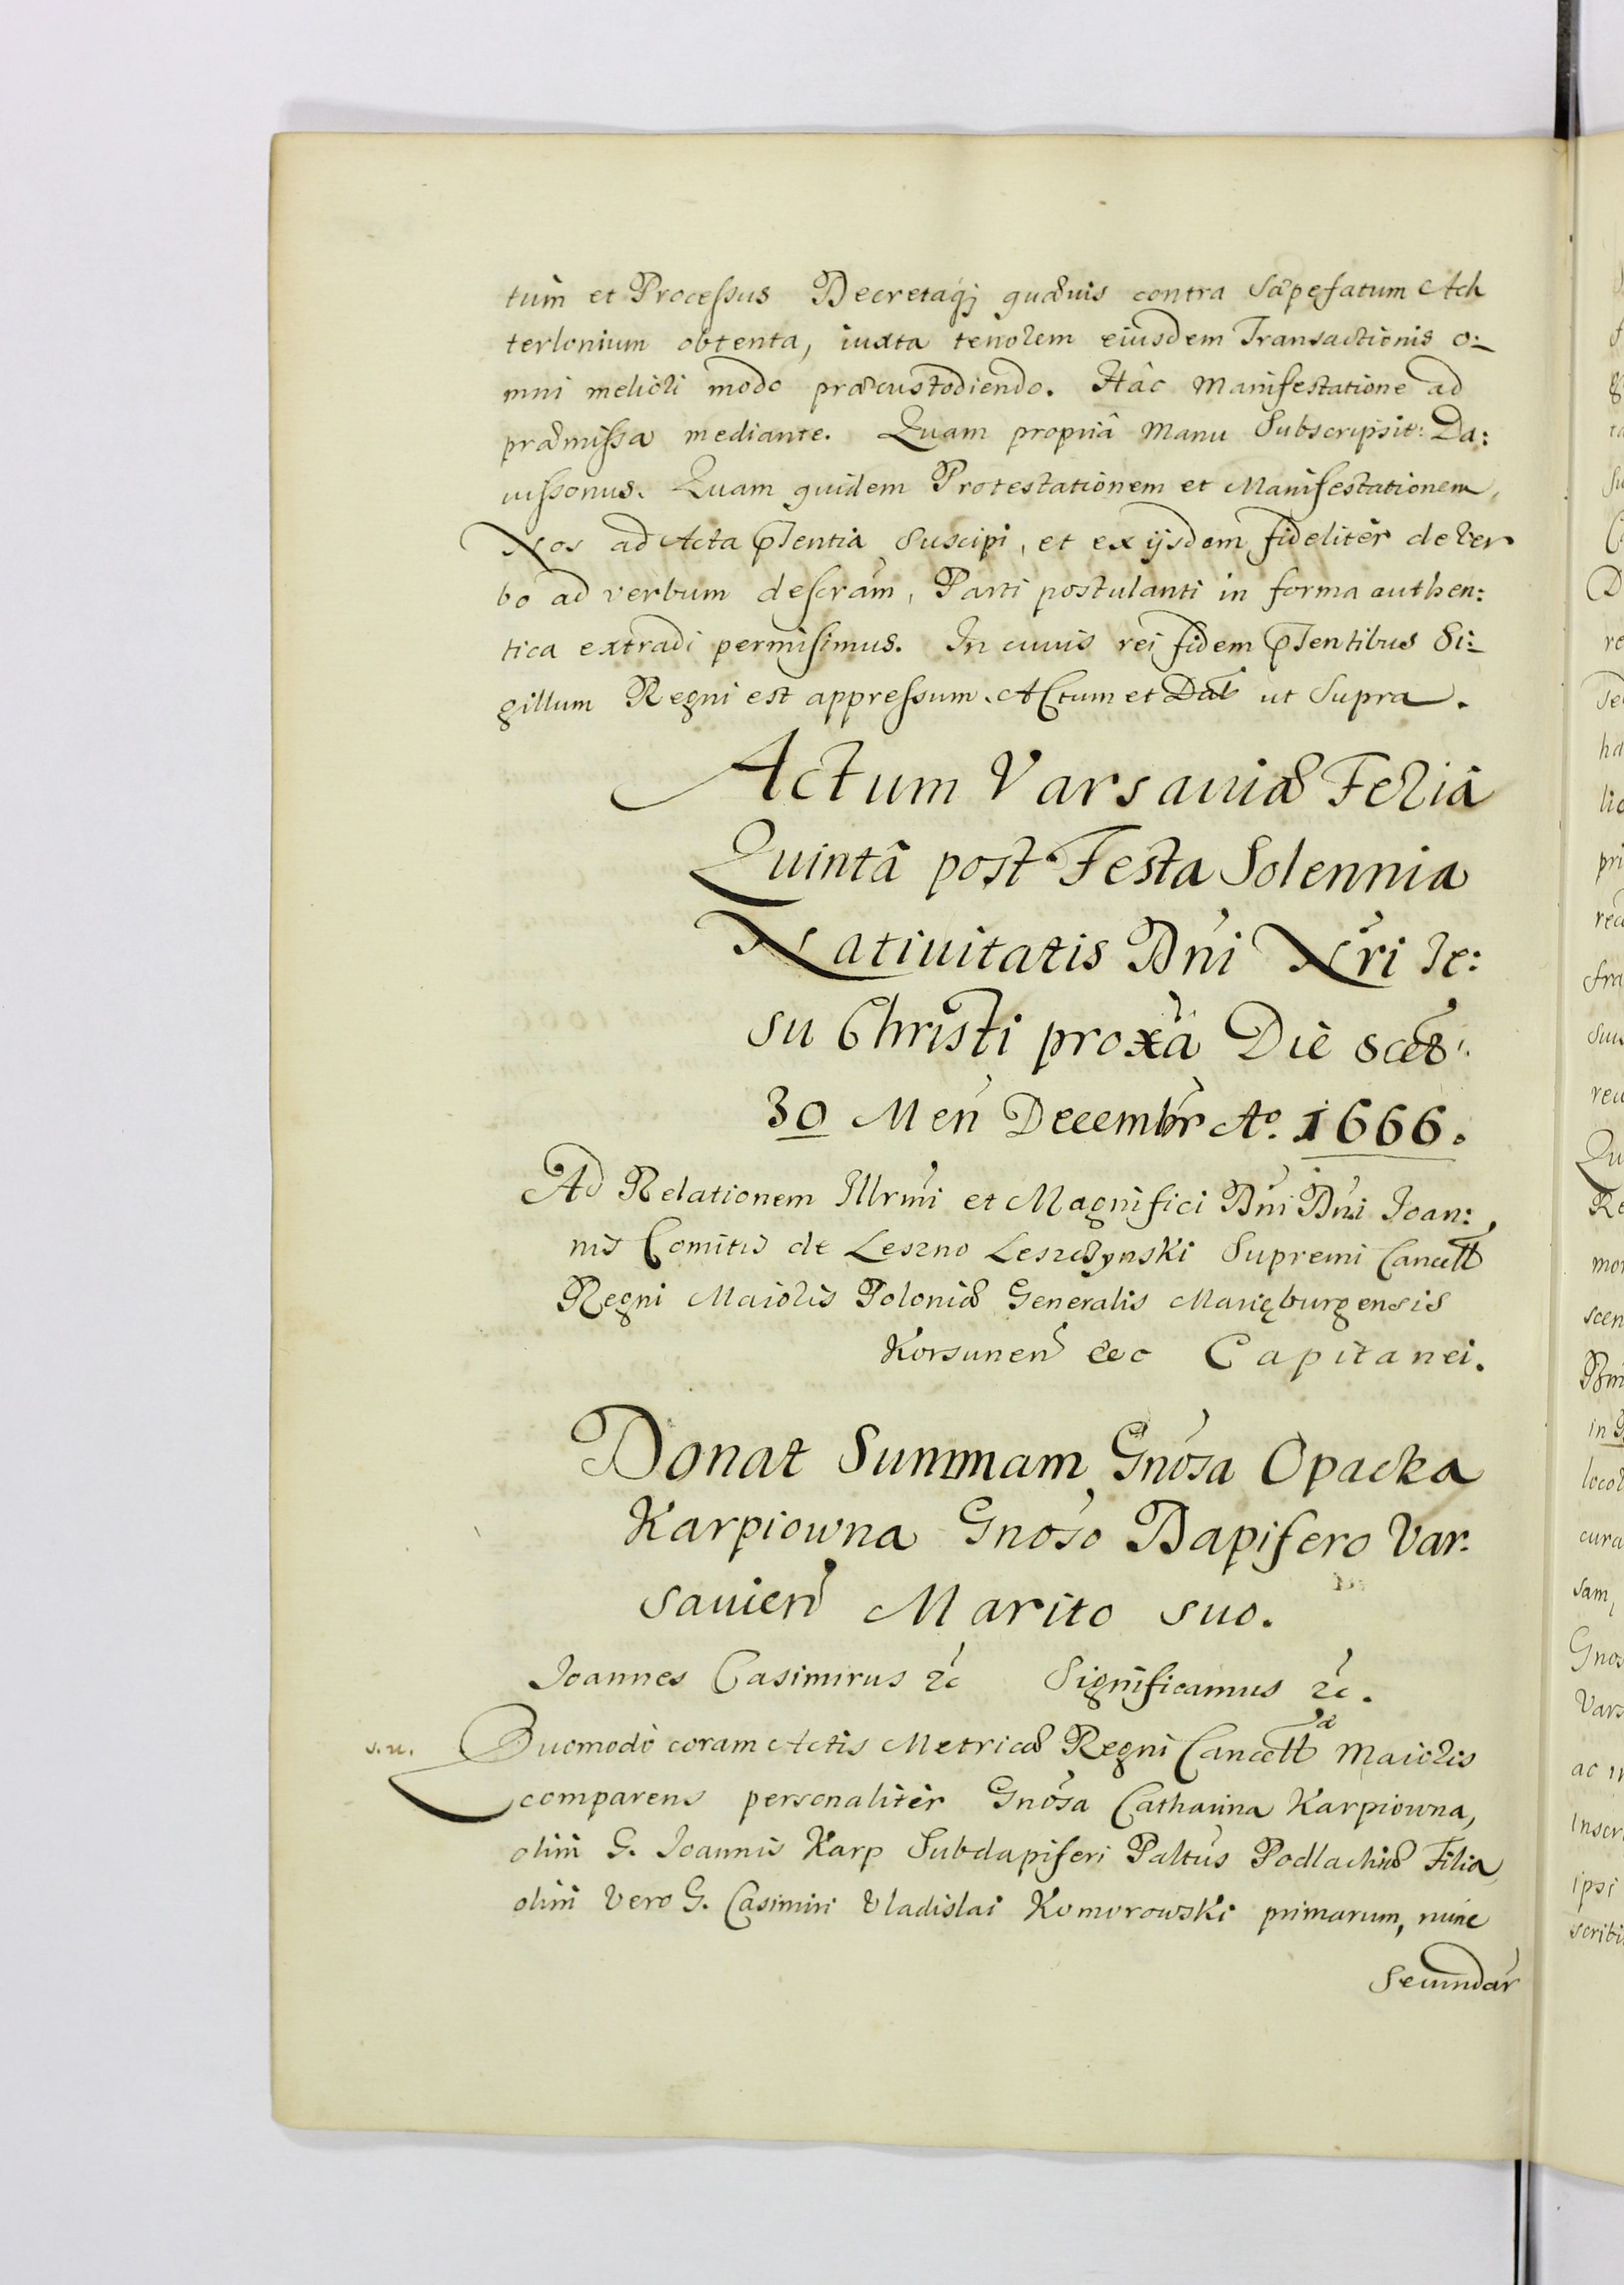 tum et Processus Decretaq; quævis contra Sæpefatum Ach
terlonium obtenta, iuxta tenorem eiusdem Transactionis o:
mni meliori modo præcustodiendo. Hâc Manifestatione ad
præmissa mediante. Quam propriâ Manu Subscripsit: Da:
uissonus. Quam quidem Protestationem et Manifestationem,
Nos ad Acta pntia Suscipi, et ex ijsdem fideliter de ver
bo ad verbum descram, Parti postulanti in forma authen:
tica extradi permisimus. In cuius rei fidem pntibus Si:
gillum Regni est appressum. Actum et Dat ut Supra.
Actum Varsaviæ Feriâ
Quintâ post Festa Solennia
Natiuitatis Dni Nri Ie:
su Christi proxâ Die scet:
30 Men Decembr Ao. 1666.
Ad Relationem Illrmi et Magnifici Dni Dni Ioan:
nis Comitis de Leszno Leszczynski Supremi Cancell
Regni Maioris Poloniæ Generalis Marięburgensis
Korsunen etc Capitanei.
Donat Summam Gnosa Opacka
Karpiowna Gnoso Dapifero Var:
sauien Marito suo.
Joannes Casimirus etc Significamus etc.
s. n. Quomodo coram Actis Metricæ Regni Cancell Maioris
comparens personaliter Gnosa Catharina Karpiowna,
olim G. Joannis Karp Subdapiferi Paltus Podlachiæ Filia
olim vero G. Casimiri Vladislai Komorowski primarum, nunc
Secundar